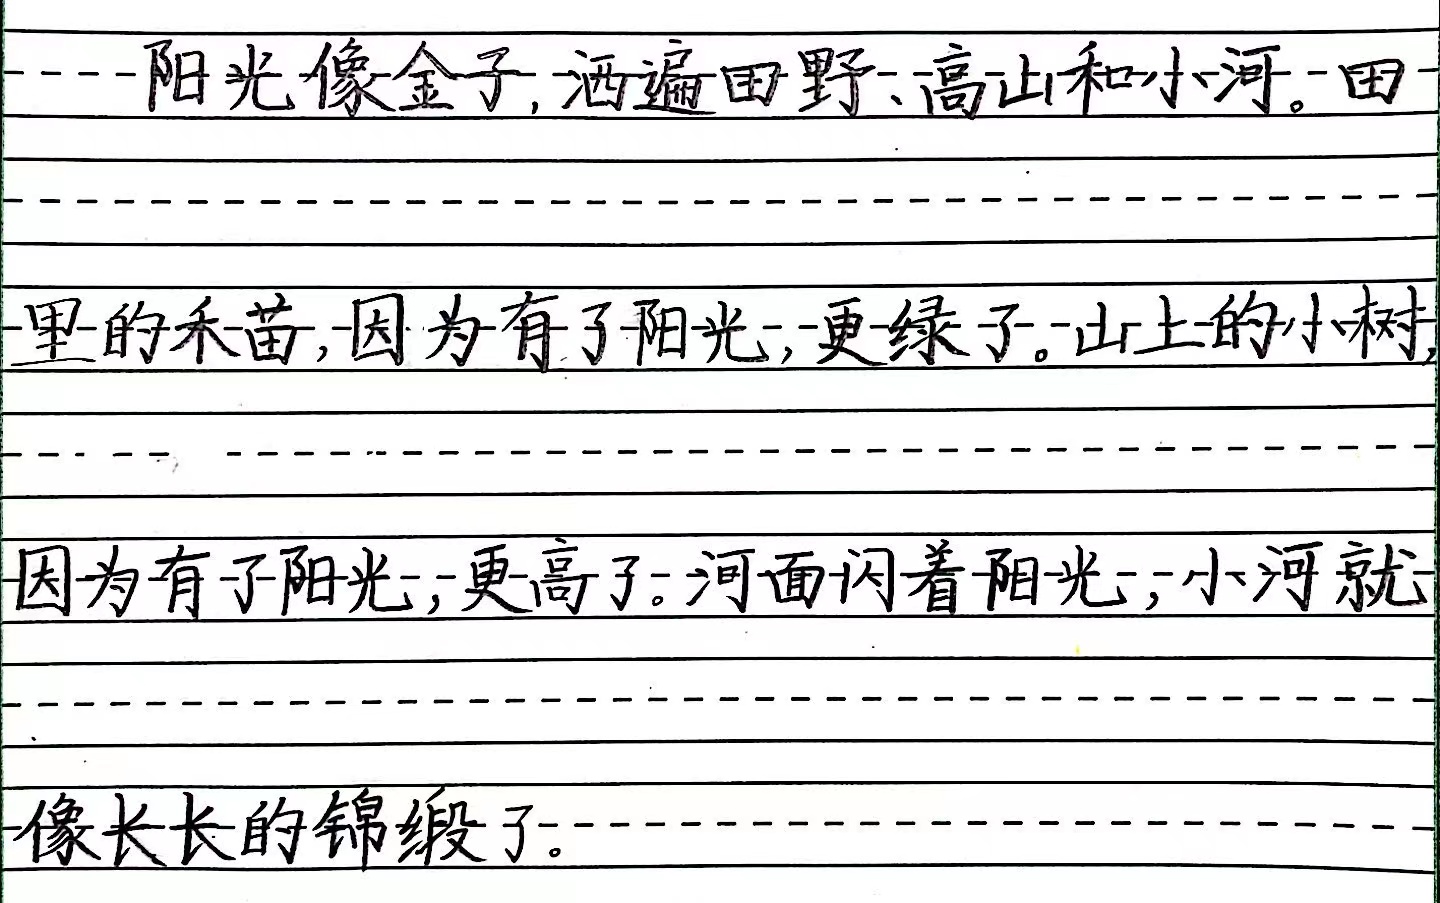 阳光像金子，洒遍田野、高山和小河。田
里的禾苗，因为有了阳光，更绿了。山上的小树，
因为有了阳光，更高了。河面闪着阳光，小河就
像长长的锦缎了。